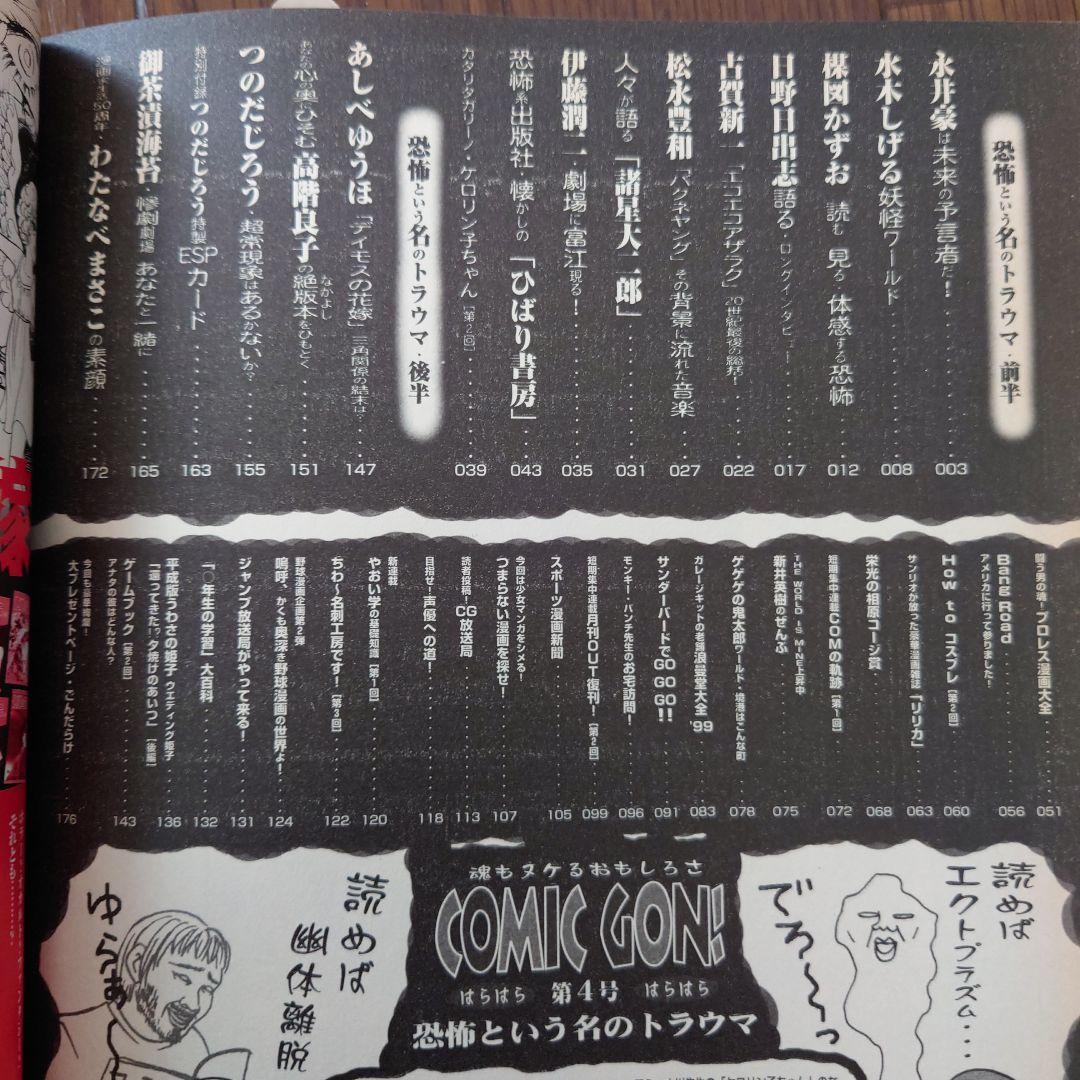 恐怖という名のトラウマ・前半
永井豪は未来の予言者だ!‥‥‥003
水木しげる妖怪ワールド‥‥‥008
楳図かずお 読む 見る 体感する恐怖‥‥‥012
日野日出志語る・ロングインタビュー‥‥‥017
古賀新一「エコエコアザラク」20世紀最後の総括!‥‥‥022
松永豊和「バクネヤング」その背景に流れた音楽‥‥‥027
人々が語る「諸星大二郎」‥‥‥031
伊藤潤二・劇場に富江現る!‥‥‥035
恐怖系出版社・懐かしの「ひばり書房」‥‥‥043
カタリタガリーノ・ケロリン子ちゃん[第2回]‥‥‥039
恐怖という名のトラウマ・後半
あしべゆうほ「デイモスの花嫁」三角関係の結末は?‥‥‥147
あなたの心の奥にひそむ高階良子のなかよし絶版本をひもとく‥‥‥151
つのだじろう・超常現象はあるかないか?‥‥‥155
特別付録 つのだじろう特製ESPカード‥‥‥163
御茶漬海苔・惨劇劇場 あなたと一緒に‥‥‥165
50周年・わたなべまさこの素顔‥‥‥172
闘う男の魂!プロレス漫画大全‥‥‥051
アメリカに行って参りました!
Bang Road‥‥‥056
How to コスプレ[第2回]‥‥‥060
サンリオが放った豪華漫画雑誌「リリカ」‥‥‥063
栄光の相原コージ賞‥‥‥068
短期集中連載COMの軌跡[第1回]‥‥‥072
THE WORLD IS MINE上昇中
新井英樹のぜんぶ‥‥‥075
ゲゲゲの鬼太郎ワールド・境港はこんな町‥‥‥078
ガレージキットの老舗浪曼堂大全'99‥‥‥083
サンダーバードでGO GO GO!!‥‥‥091
モンキー・パンチ先生のお宅訪問!‥‥‥096
短期集中連載月刊OUT復刊![第2回]‥‥‥099
スポーツ漫画新聞‥‥‥105
今回は少女マンガをシメる!
つまらない漫画を探せ!‥‥‥107
読者投稿!CG放送局‥‥‥113
目指せ!声優への道!‥‥‥118
新連載
やおい学の基礎知識[第1回]‥‥‥120
ちわ〜名刺工房です![第3回]‥‥‥122
野球漫画企画第2弾
嗚呼、かくも奥深き野球漫画の世界よ!‥‥‥124
ジャンプ放送局がやって来る!‥‥‥131
「○年生の学習」大百科‥‥‥132
平成版うわさの姫子 ウエディング姫子
「還ってきた!?夕焼けのあいつ」[後編]‥‥‥136
ゲームブック[第2回]
アナタの彼女どんな人?‥‥‥143
今回も豪華絢爛!
大プレゼントページ・ごんだらけ‥‥‥176
魂もヌケるおもしろさ
COMIC GON!
はらはら 第4号 はらはら
恐怖という名のトラウマ
読めば
エクトプラズム・・・
でろ〜〜っ
読めば
幽体離脱
ゆらぁ〜
それとも